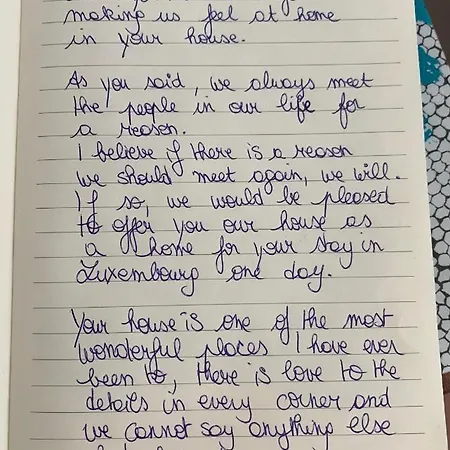 making us feel at home
in your house.
As you said, we always meet
the people in our life for
a reason.
I believe if there is a reason
we should meet again, we will.
If so, we would be pleased
to offer you our house as
a home for your stay in
Luxembourg one day.
Your house is one of the most
wonderful places I have ever
been to, there is love to the
details in every corner and
we cannot say anything else